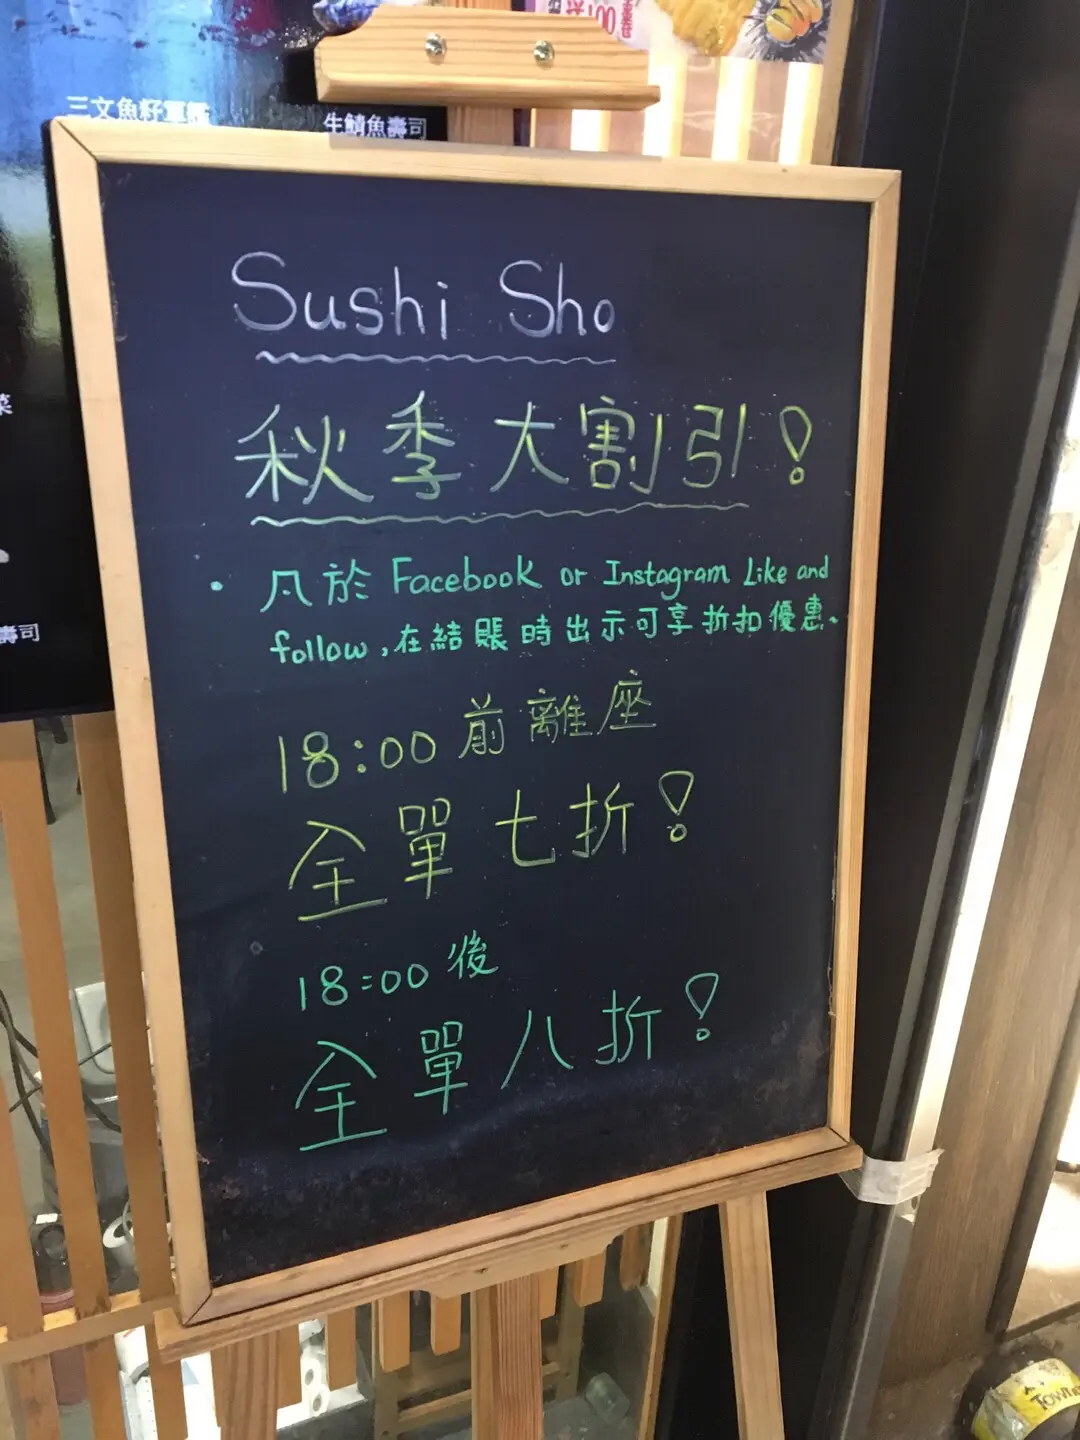 送100壽
三文魚籽軍艦
生鯖魚壽司
菜
壽司
Sushi Sho
秋季大割引!
• 凡於 Facebook or Instagram Like and
follow,在結賬時出示可享折扣優惠。
18:00 前離座
全單七折!
18:00 後
全單八折!